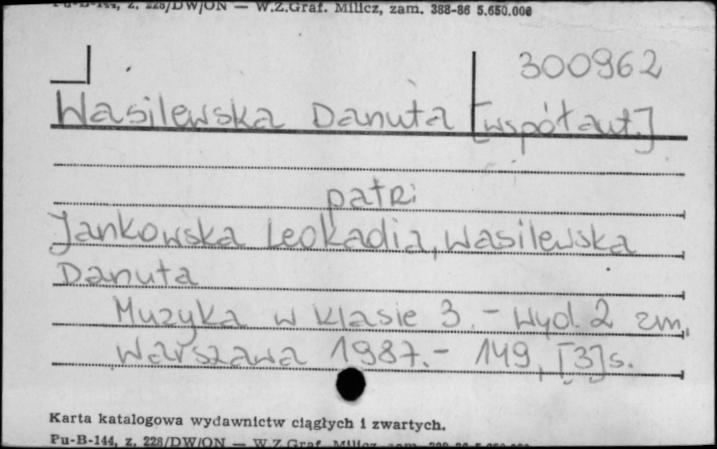 Pu-B-144, z. 228/DW/ON — W.Z.Graf. Milicz, zam. 388-86 5.650.000
300962
Wasilewska Danuta [współaut.]
patrz
Jankowska Leokadia, Wasilewska
Danuta
Muzyka w klasie 3. - Wyd. 2 zm.
Warszawa 1987. - 149, [3] s.
Karta katalogowa wydawnictw ciągłych i zwartych.
Pu-B-144, z. 228/DW/ON — W.Z.Graf. Milicz